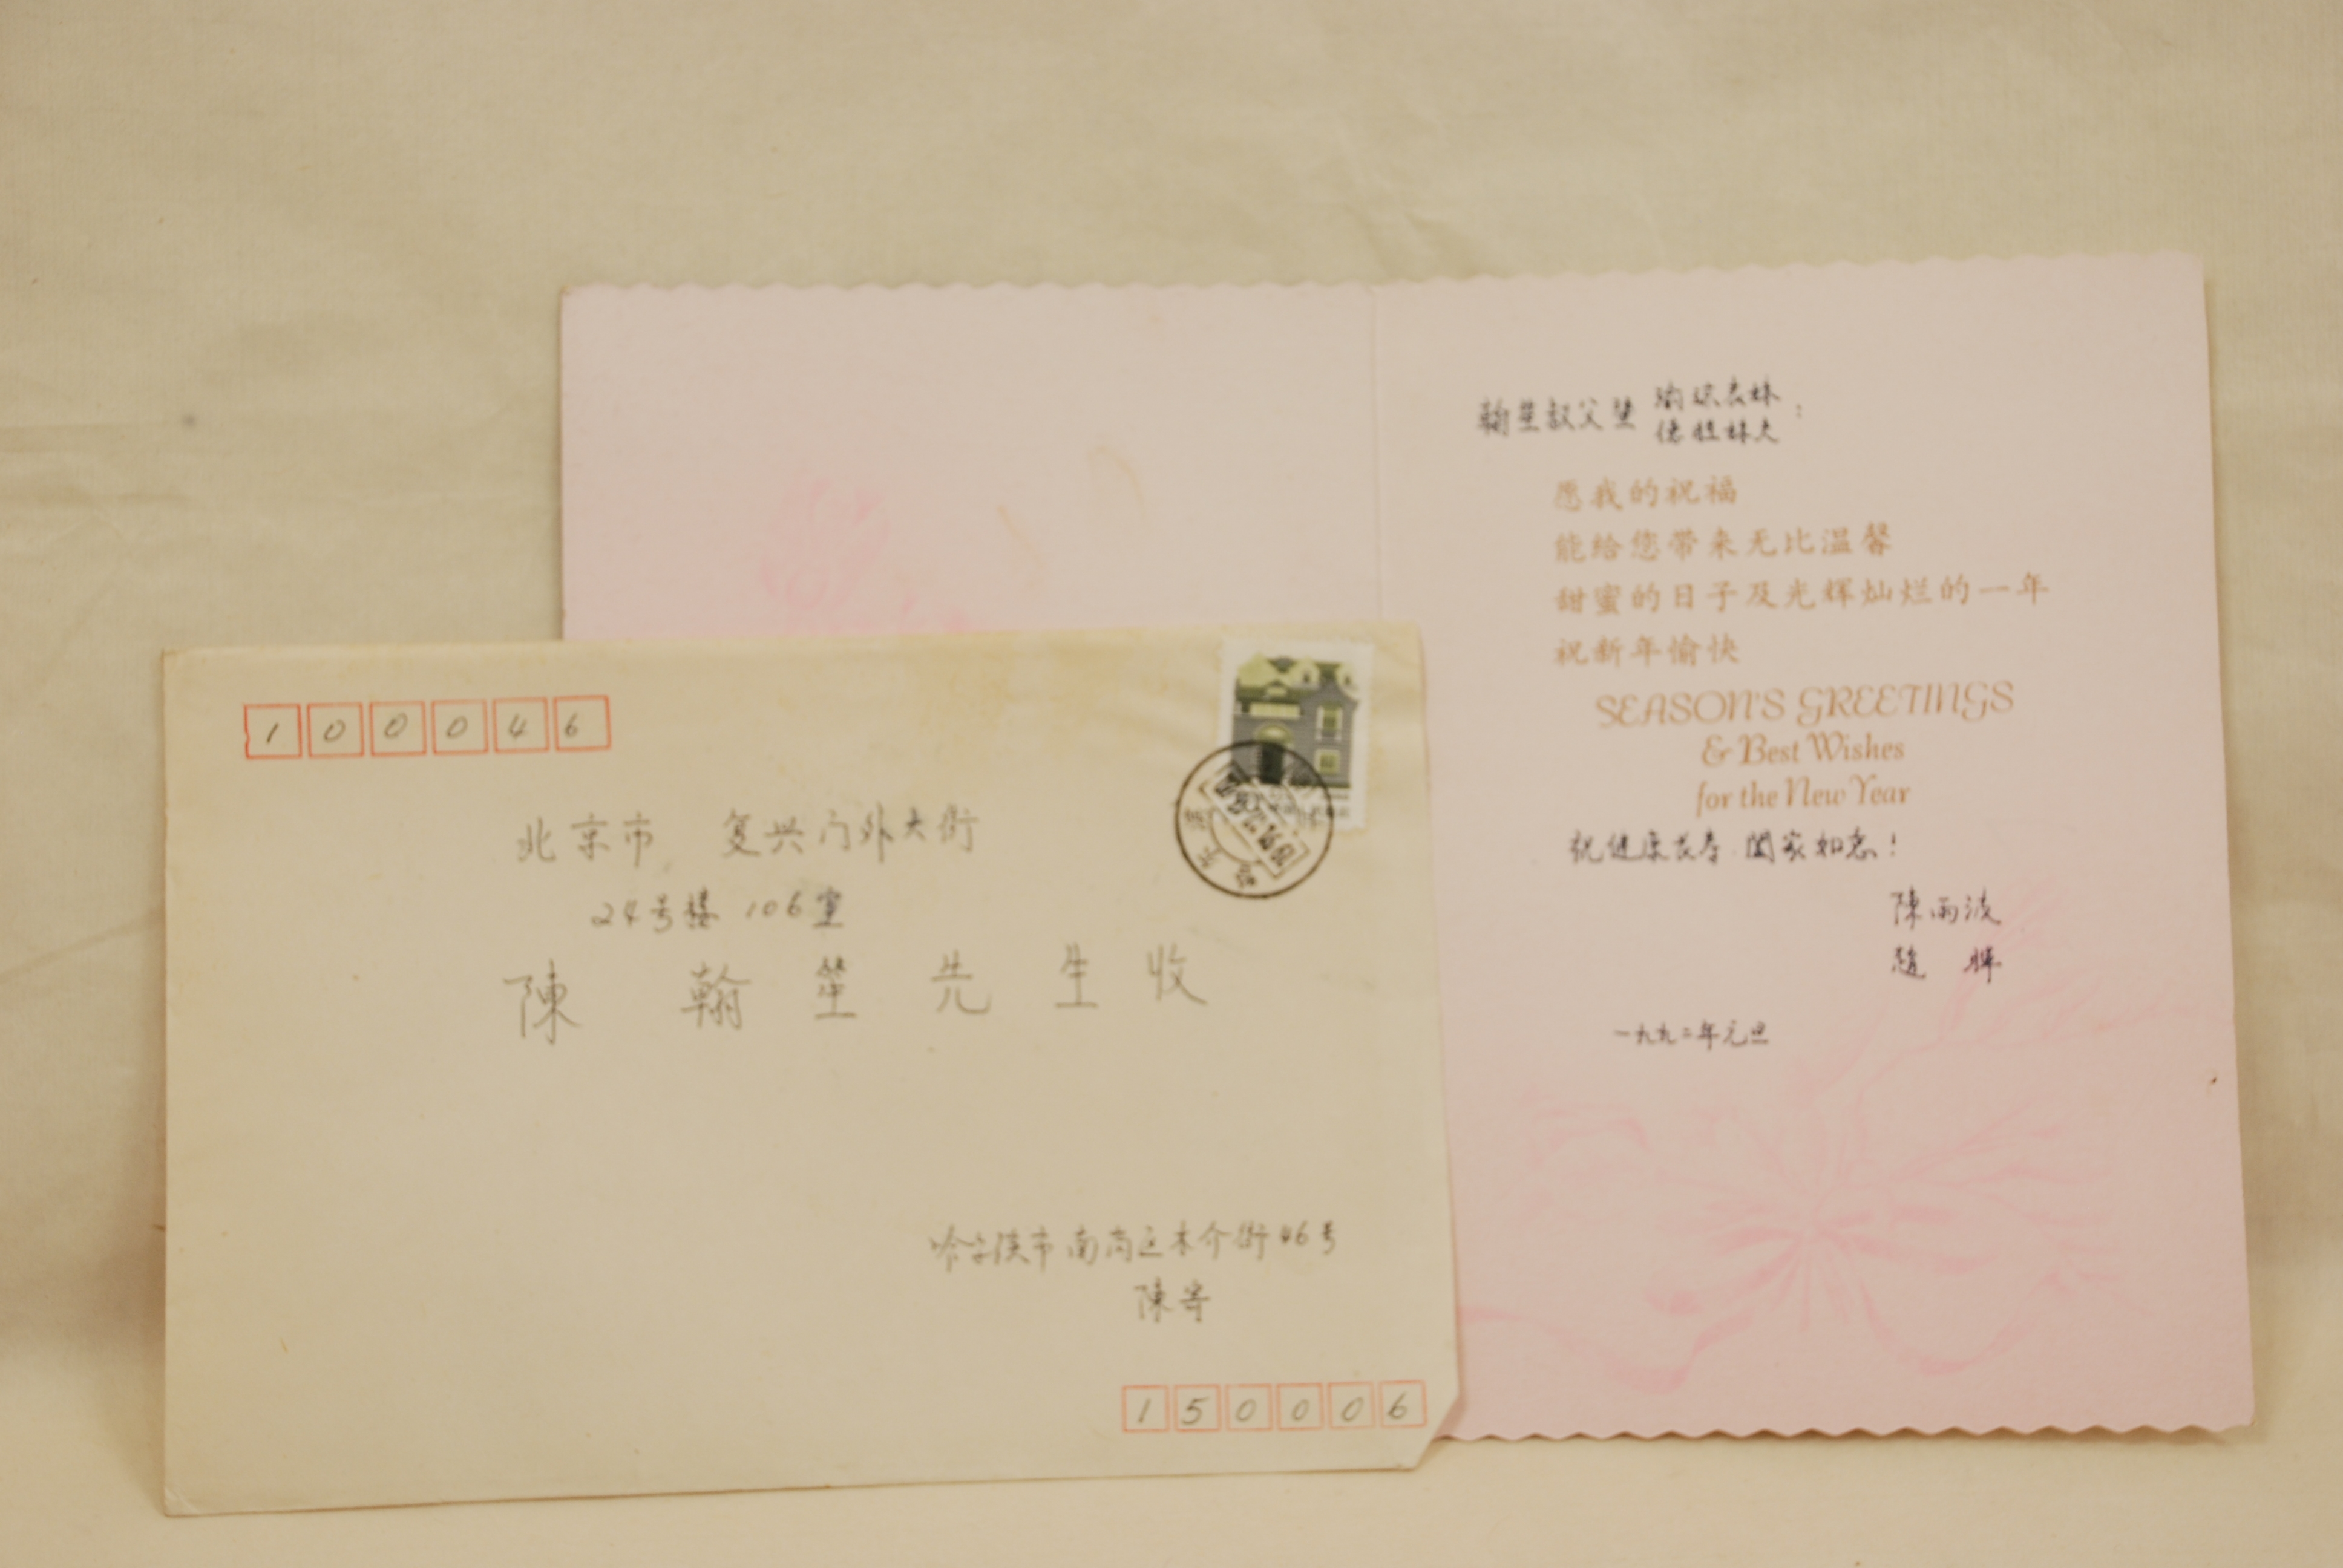 100046
北京市 复兴门外大街
24号楼 106室
陳翰笙先生收
哈尔滨市南岗区木介街46号
陳寄
150006
翰笙叔父暨
表妹
妹夫:
愿我的祝福
能给您带来无比温馨
甜蜜的日子及光辉灿烂的一年
祝新年愉快
SEASON'S GREETINGS
& Best Wishes
for the New Year
祝健康长寿 闔家如意!
陳雨波
趙
一九九二年元旦